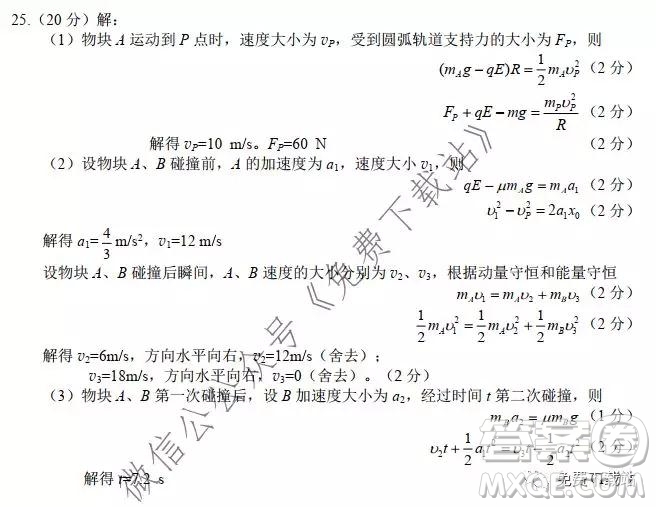 25.（20 分）解：
（1）物块 A 运动到 P 点时，速度大小为 vP，受到圆弧轨道支持力的大小为 FP，则
(mAg − qE)R = 1/2 mAυP²（2 分）
FP + qE − mg = mPυP²/R（2 分）
解得 vP=10 m/s。FP=60 N （2 分）
（2）设物块 A、B 碰撞前，A 的加速度为 a1，速度大小 v1，则
qE − μmAg = mAa1（2 分）
υ1² − υP² = 2a1x0（2 分）
解得 a1= 4/3 m/s²，v1=12 m/s
设物块 A、B 碰撞后瞬间，A、B 速度的大小分别为 v2、v3，根据动量守恒和能量守恒
mAυ1 = mAυ2 + mBυ3（2 分）
1/2 mAυ1² = 1/2 mAυ2² + 1/2 mBυ3²（2 分）
解得 v2=6m/s，方向水平向右，v2=12m/s（舍去）；
v3=18m/s，方向水平向右，v3=0（舍去）。（2 分）
（3）物块 A、B 第一次碰撞后，设 B 加速度大小为 a2，经过时间 t 第二次碰撞，则
mBa2 = μmBg（1 分）
υ2t + 1/2 a1t² = υ3t − 1/2 a2t²（2 分）
解得 t=7.2 s
微信公众号《免费下载站》
答案圈
MXQE.COM
免费下载站